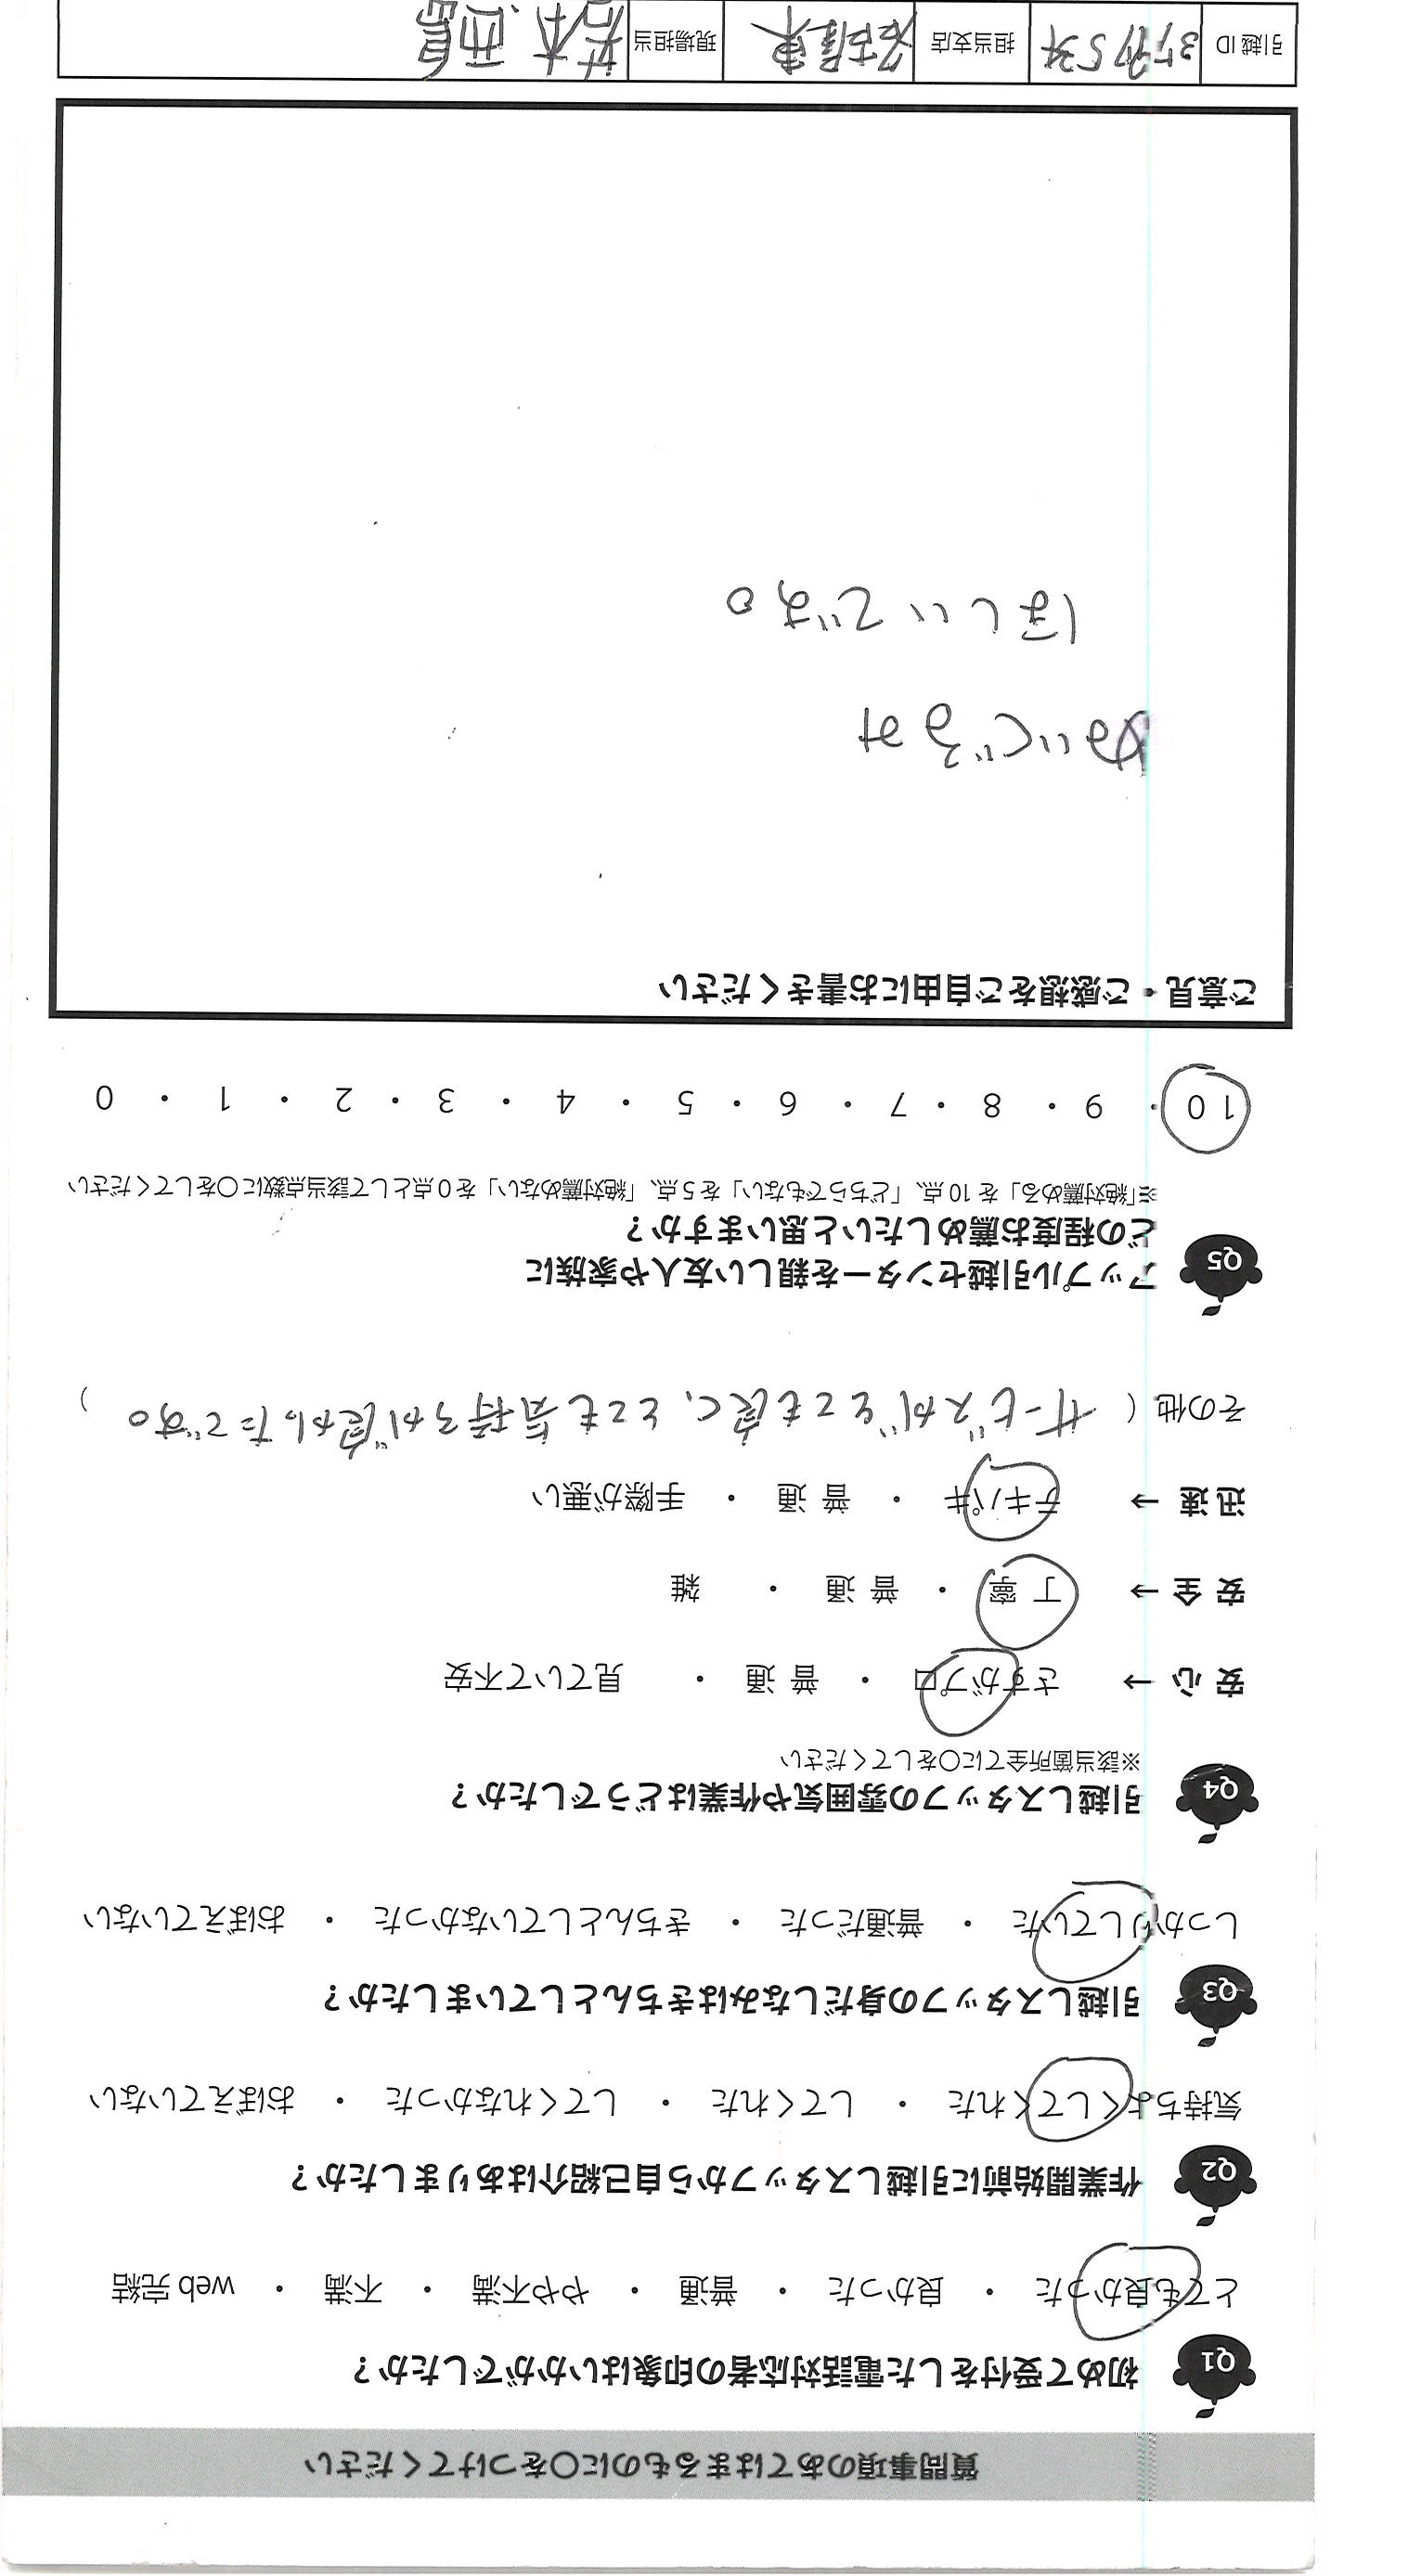 質問事項のあてはまるものに〇をつけてください
Q1 初めて受付をした電話対応者の印象はいかがでしたか？
とても良かった ・ 良かった ・ 普通 ・ やや不満 ・ 不満 ・ web 完結
Q2 作業開始前に引越しスタッフから自己紹介はありましたか？
気持ちよくしてくれた ・ してくれた ・ してくれなかった ・ おぼえていない
Q3 引越しスタッフの身だしなみはきちんとしていましたか？
しっかりしていた ・ 普通だった ・ きちんとしていなかった ・ おぼえていない
Q4 引越しスタッフの雰囲気や作業はどうでしたか？
※該当箇所全てに〇をしてください
安 心 → さすがプロ ・ 普 通 ・ 見ていて不安
安 全 → 丁 寧 ・ 普 通 ・ 雑
迅 速 → テキパキ ・ 普 通 ・ 手際が悪い
その他 ( サービスがとても良く、とても気持ちが良かったです。 )
Q5 アップル引越センターを親しい友人や家族に
どの程度お薦めしたいと思いますか？
※「絶対薦める」を 10 点、「どちらでもない」を 5 点、「絶対薦めない」を 0 点として該当点数に〇をしてください
10 ・ 9 ・ 8 ・ 7 ・ 6 ・ 5 ・ 4 ・ 3 ・ 2 ・ 1 ・ 0
ご意見・ご感想をご自由にお書きください
ぬいぐるみ
ほしいです。
引越 ID 担当支店 名古屋東 現場担当